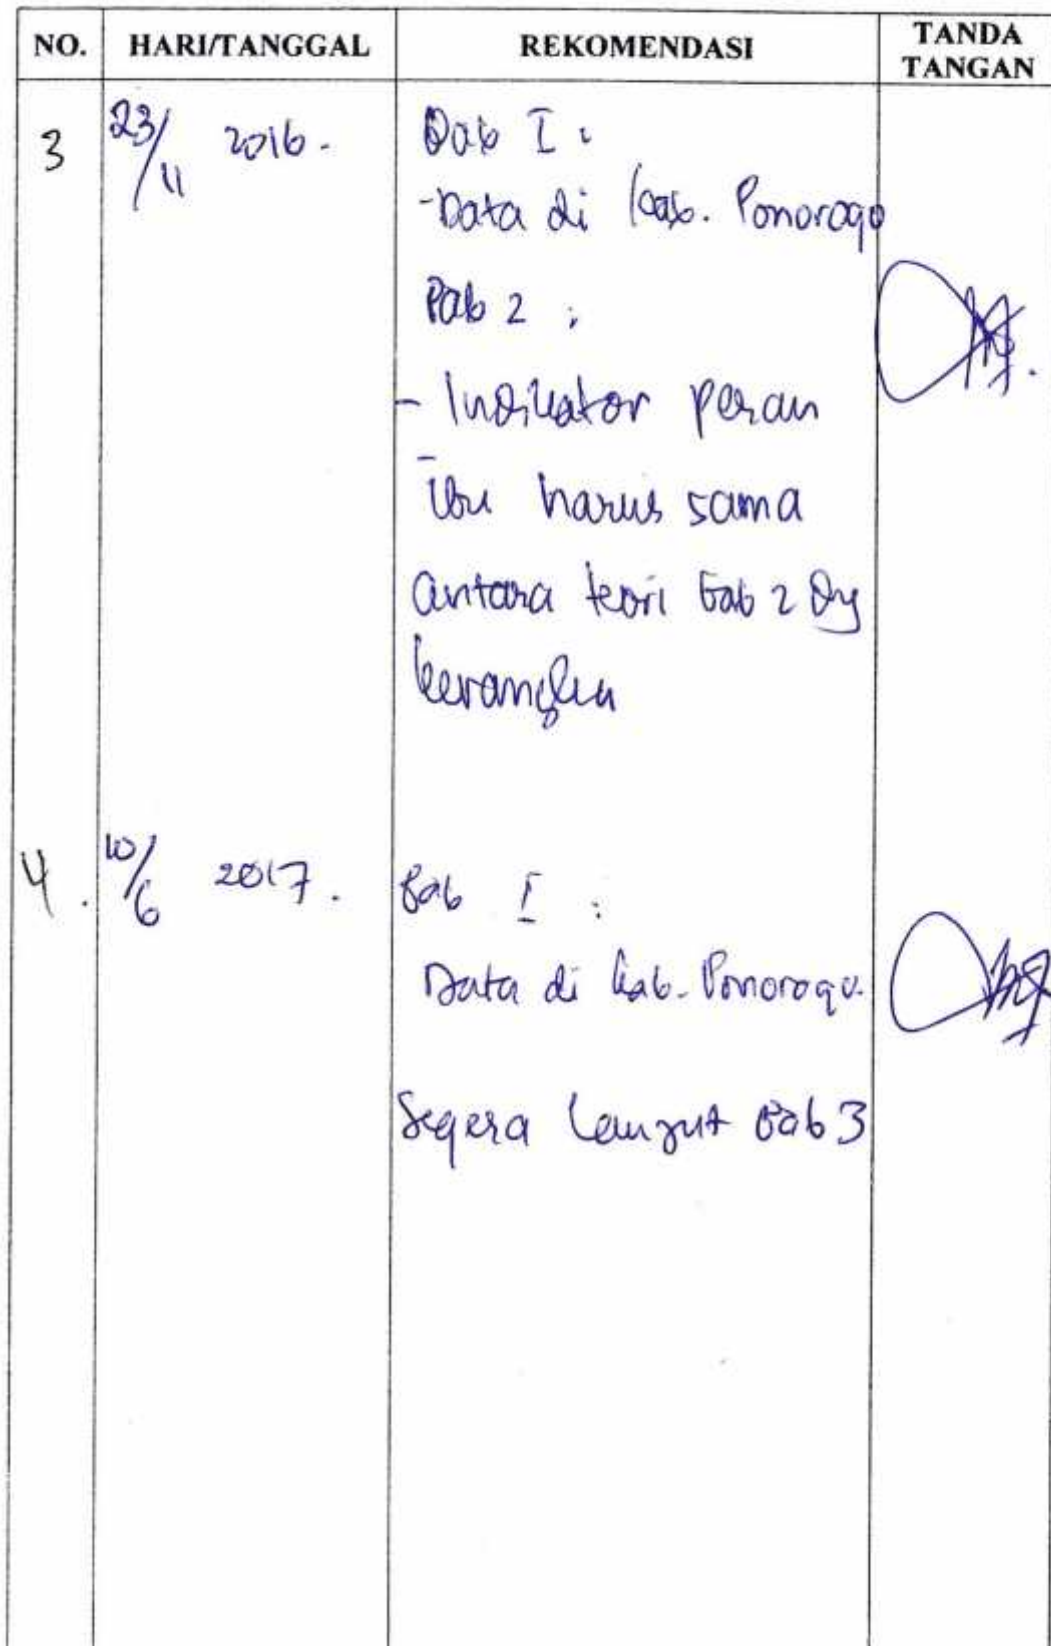 NO. HARI/TANGGAL REKOMENDASI TANDA TANGAN
3 23/11 2016. Bab I :
- Data di kab. Ponorogo
Bab 2 :
- Indikator peran
ibu harus sama
antara teori bab 2 dg
kerangka
4. 10/6 2017. Bab I :
Data di kab. Ponorogo.
Segera lanjut Bab 3